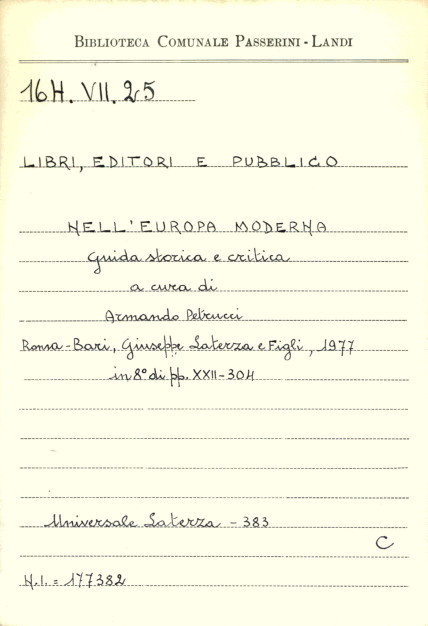 BIBLIOTECA COMUNALE PASSERINI - LANDI
16H. VII. 25
LIBRI, EDITORI E PUBBLICO
NELL'EUROPA MODERNA
Guida storica e critica
a cura di
Armando Petrucci
Roma-Bari, Giuseppe Laterza e Figli, 1977
in 8° di pp. XXII-304
Universale Laterza - 383
C
N.I. = 177382